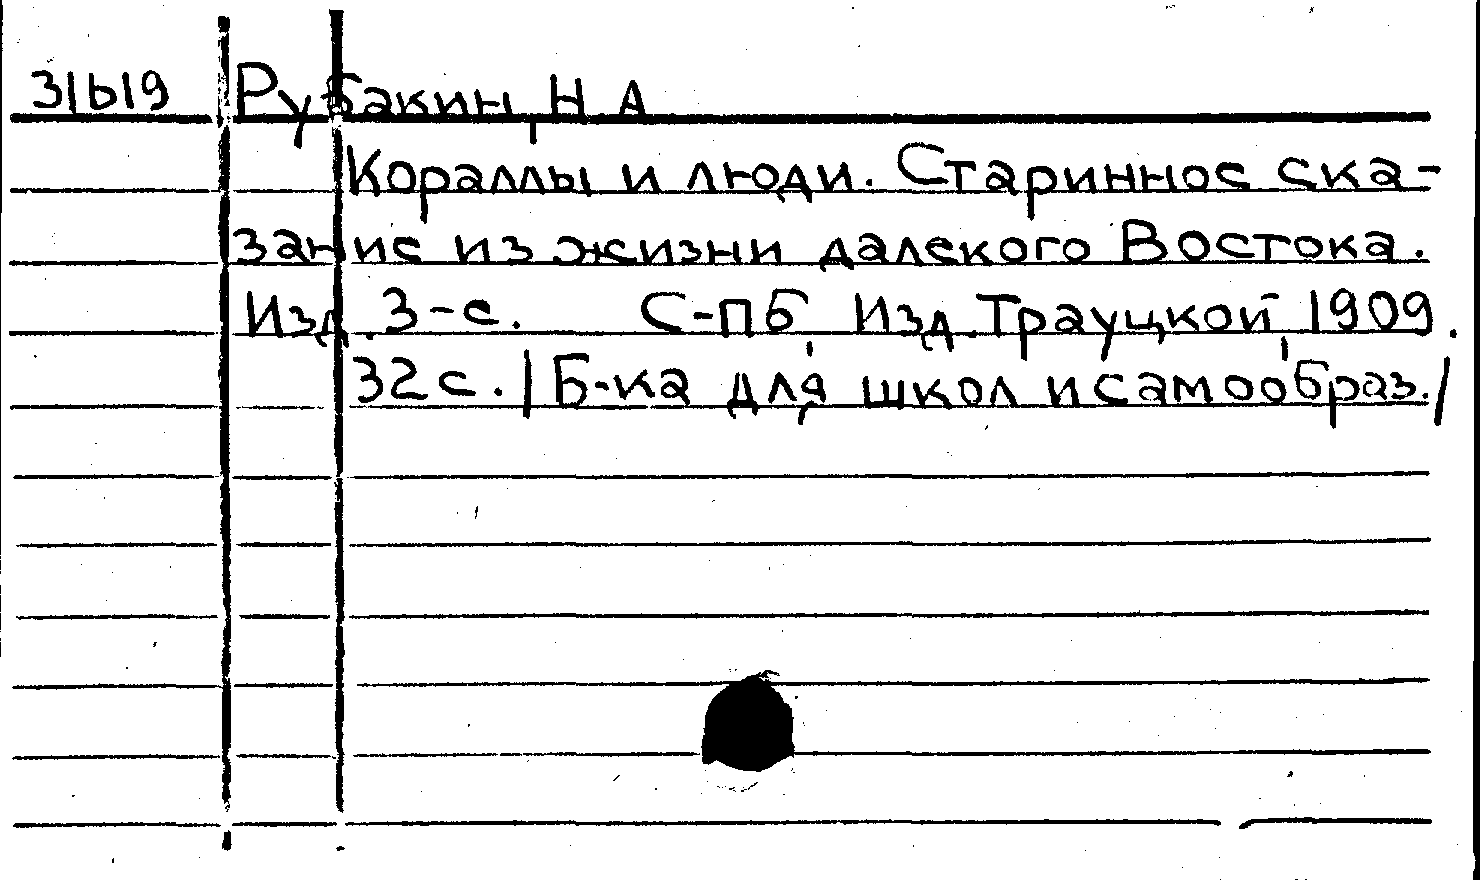 31619 Рубакин, Н.А
Кораллы и люди. Старинное ска-
зание из жизни далекого Востока.
Изд. 3-е. С-пб, Изд. Трауцкой, 1909.
32 с. /Б-ка для школ и самообраз./